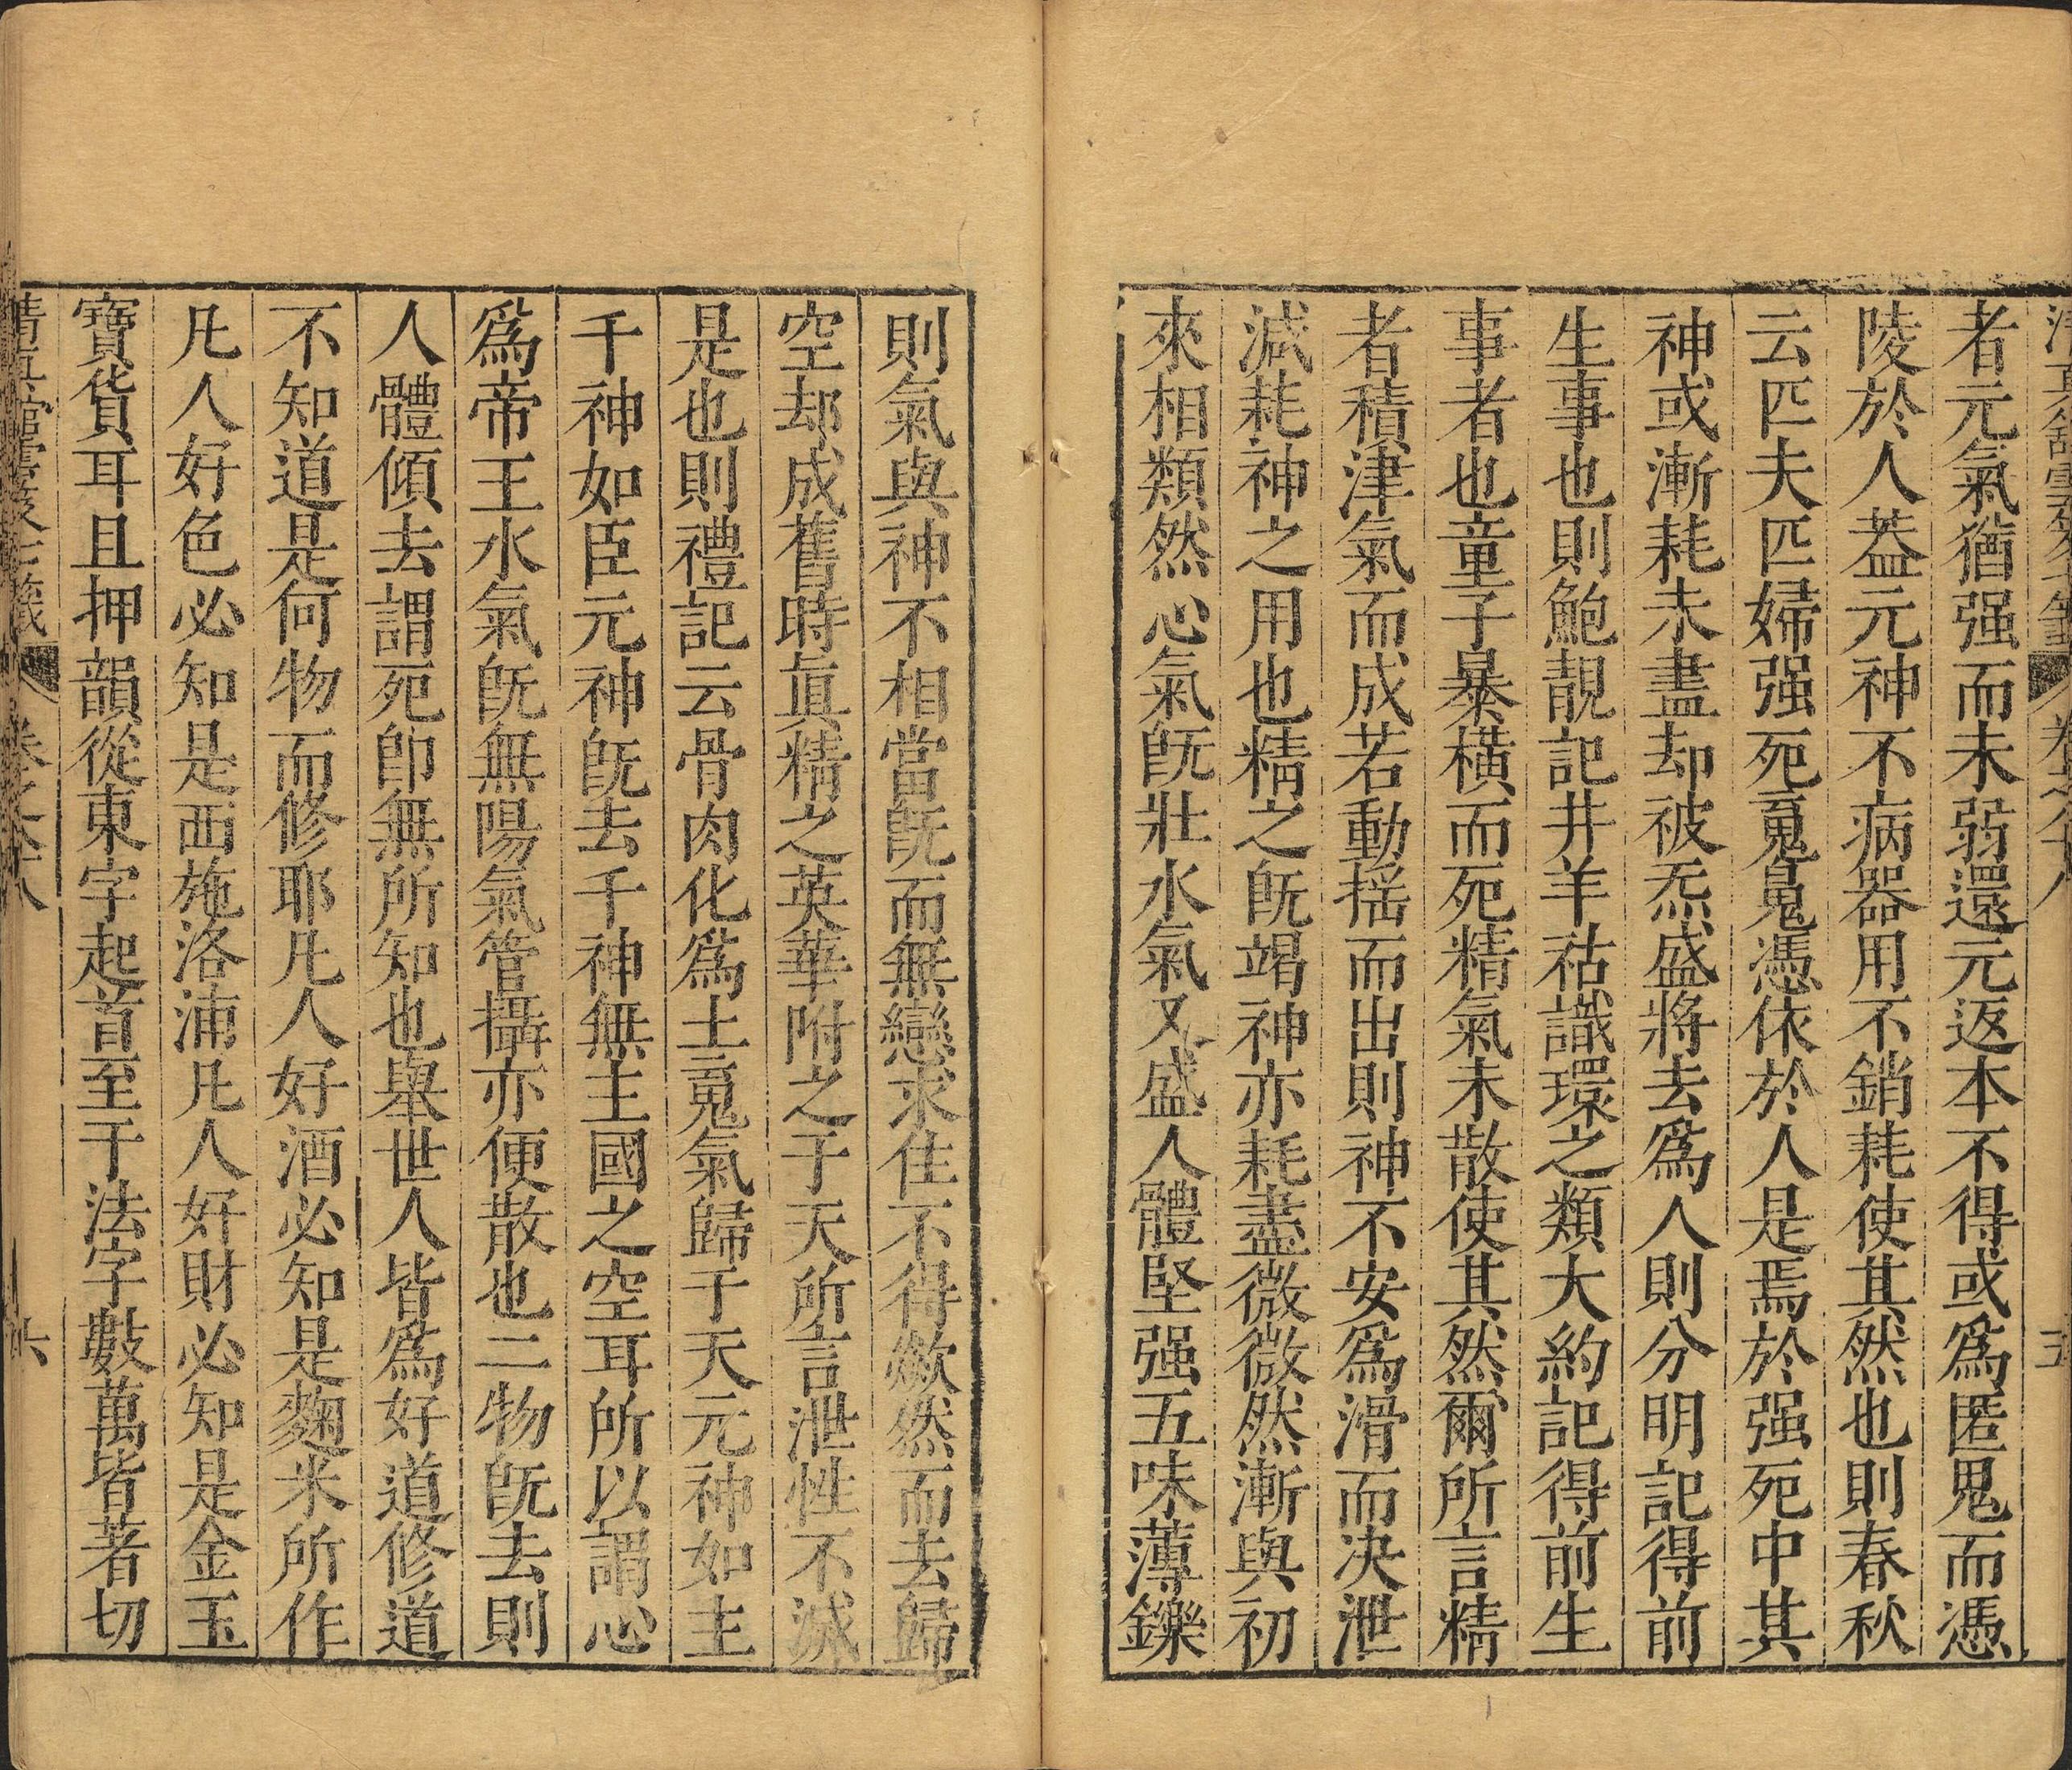 者元氣猶强而未弱還元返本不得或爲匿鬼而憑
陵於人葢元神不病器用不銷耗使其然也則春秋
云匹夫匹婦强死䰟鬼憑依於人是焉於强死中其
神或漸耗未盡却被炁盛將去爲人則分明記得前
生事也則鮑靚記井羊祜識環之類大約記得前生
事者也童子暴橫而死精氣未散使其然爾所言精
者積津氣而成若動揺而出則神不安爲滑而决泄
減耗神之用也精之旣竭神亦耗盡微微然漸與初
來相類然心氣旣壯水氣又盛人體堅强五味薄鑠
則氣與神不相當旣而無戀求住不得歘然而去歸
空却成舊時眞精之英華附之于天所言泄性不滅
是也則禮記云骨肉化爲土䰟氣歸于天元神如主
千神如臣元神旣去千神無主國之空耳所以謂心
爲帝王水氣旣無陽氣管攝亦便散也二物旣去則
人體傾去謂死卽無所知也舉世人皆爲好道修道
不知道是何物而修耶凡人好酒必知是麴米所作
凡人好色必知是西施洛浦凡人好財必知是金玉
寶貨耳且押韻從東字起首至于法字數萬皆著切
清眞館雲笈七籤 卷之六十八 六